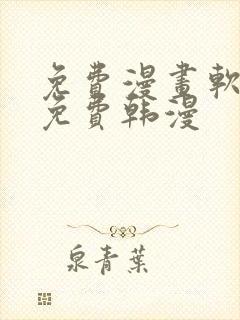 免費漫畫軟
免費韩漫
泉青葉